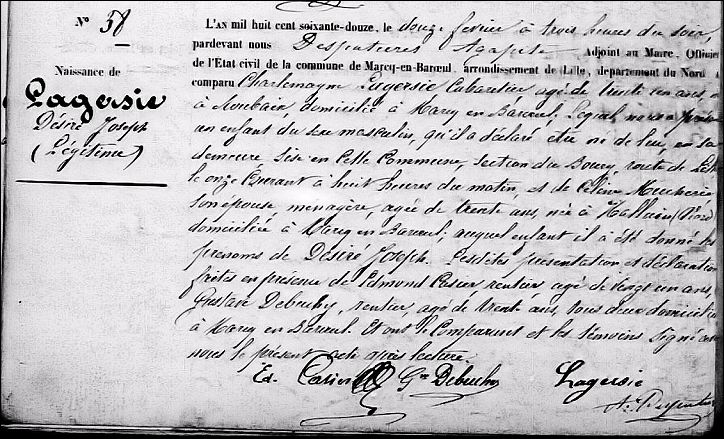 N° 58
Naissance de
Lagersie
Désiré Joseph
(Légitime)
L'AN mil huit cent soixante-douze, le douze fevrier à trois heures du soir,
pardevant nous Despatures Agapite Adjoint au Maire, Officier
de l'Etat civil de la commune de Marcq-en-Barœul, arrondissement de Lille, département du Nord
comparu Charlemagne Lagersie Cabaretier agé de trente un ans, né
à Roubaix, domicilié à Marcq en Barœul, Lequel nous a présenté
un enfant du sexe masculin, qu'il a déclaré etre né de lui, en sa
demeure Sise en Cette Commune, Section du Bourg, route de
le onze Courant à huit heures du matin, et de Céline
son épouse menagère, agée de trente ans, née à Halluin (Nord)
domiciliée à Marcq en Barœul; auquel enfant il a été donné les
prenoms de Désiré Joseph. Lesdites présentation et déclaration
faites en présence de Edmond Casier rentier agé de vingt un ans,
Gustave Debuchy, rentier, agé de trente ans, tous deux domiciliés
à Marcq en Barœul. Et ont le Comparant et les témoins signé avec
nous le présent acte après lecture.
Ed. Casier Gve Debuchy Lagersie